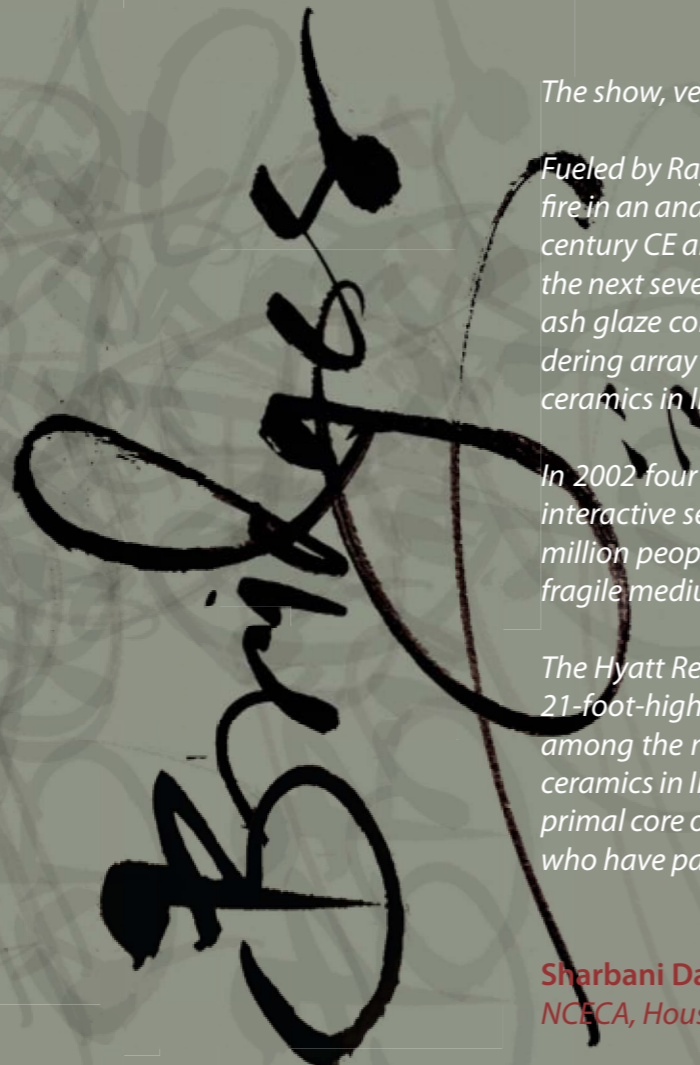 Bridges
in
The show, ve
Fueled by Ra
fire in an
century CE a
the next seve
ash glaze co
dering array
ceramics in
In 2002 four
interactive se
million peop
fragile mediu
The Hyatt Re
21-foot-high
among the
ceramics in
primal core
who have pa
Sharbani Da
NCECA, Hous